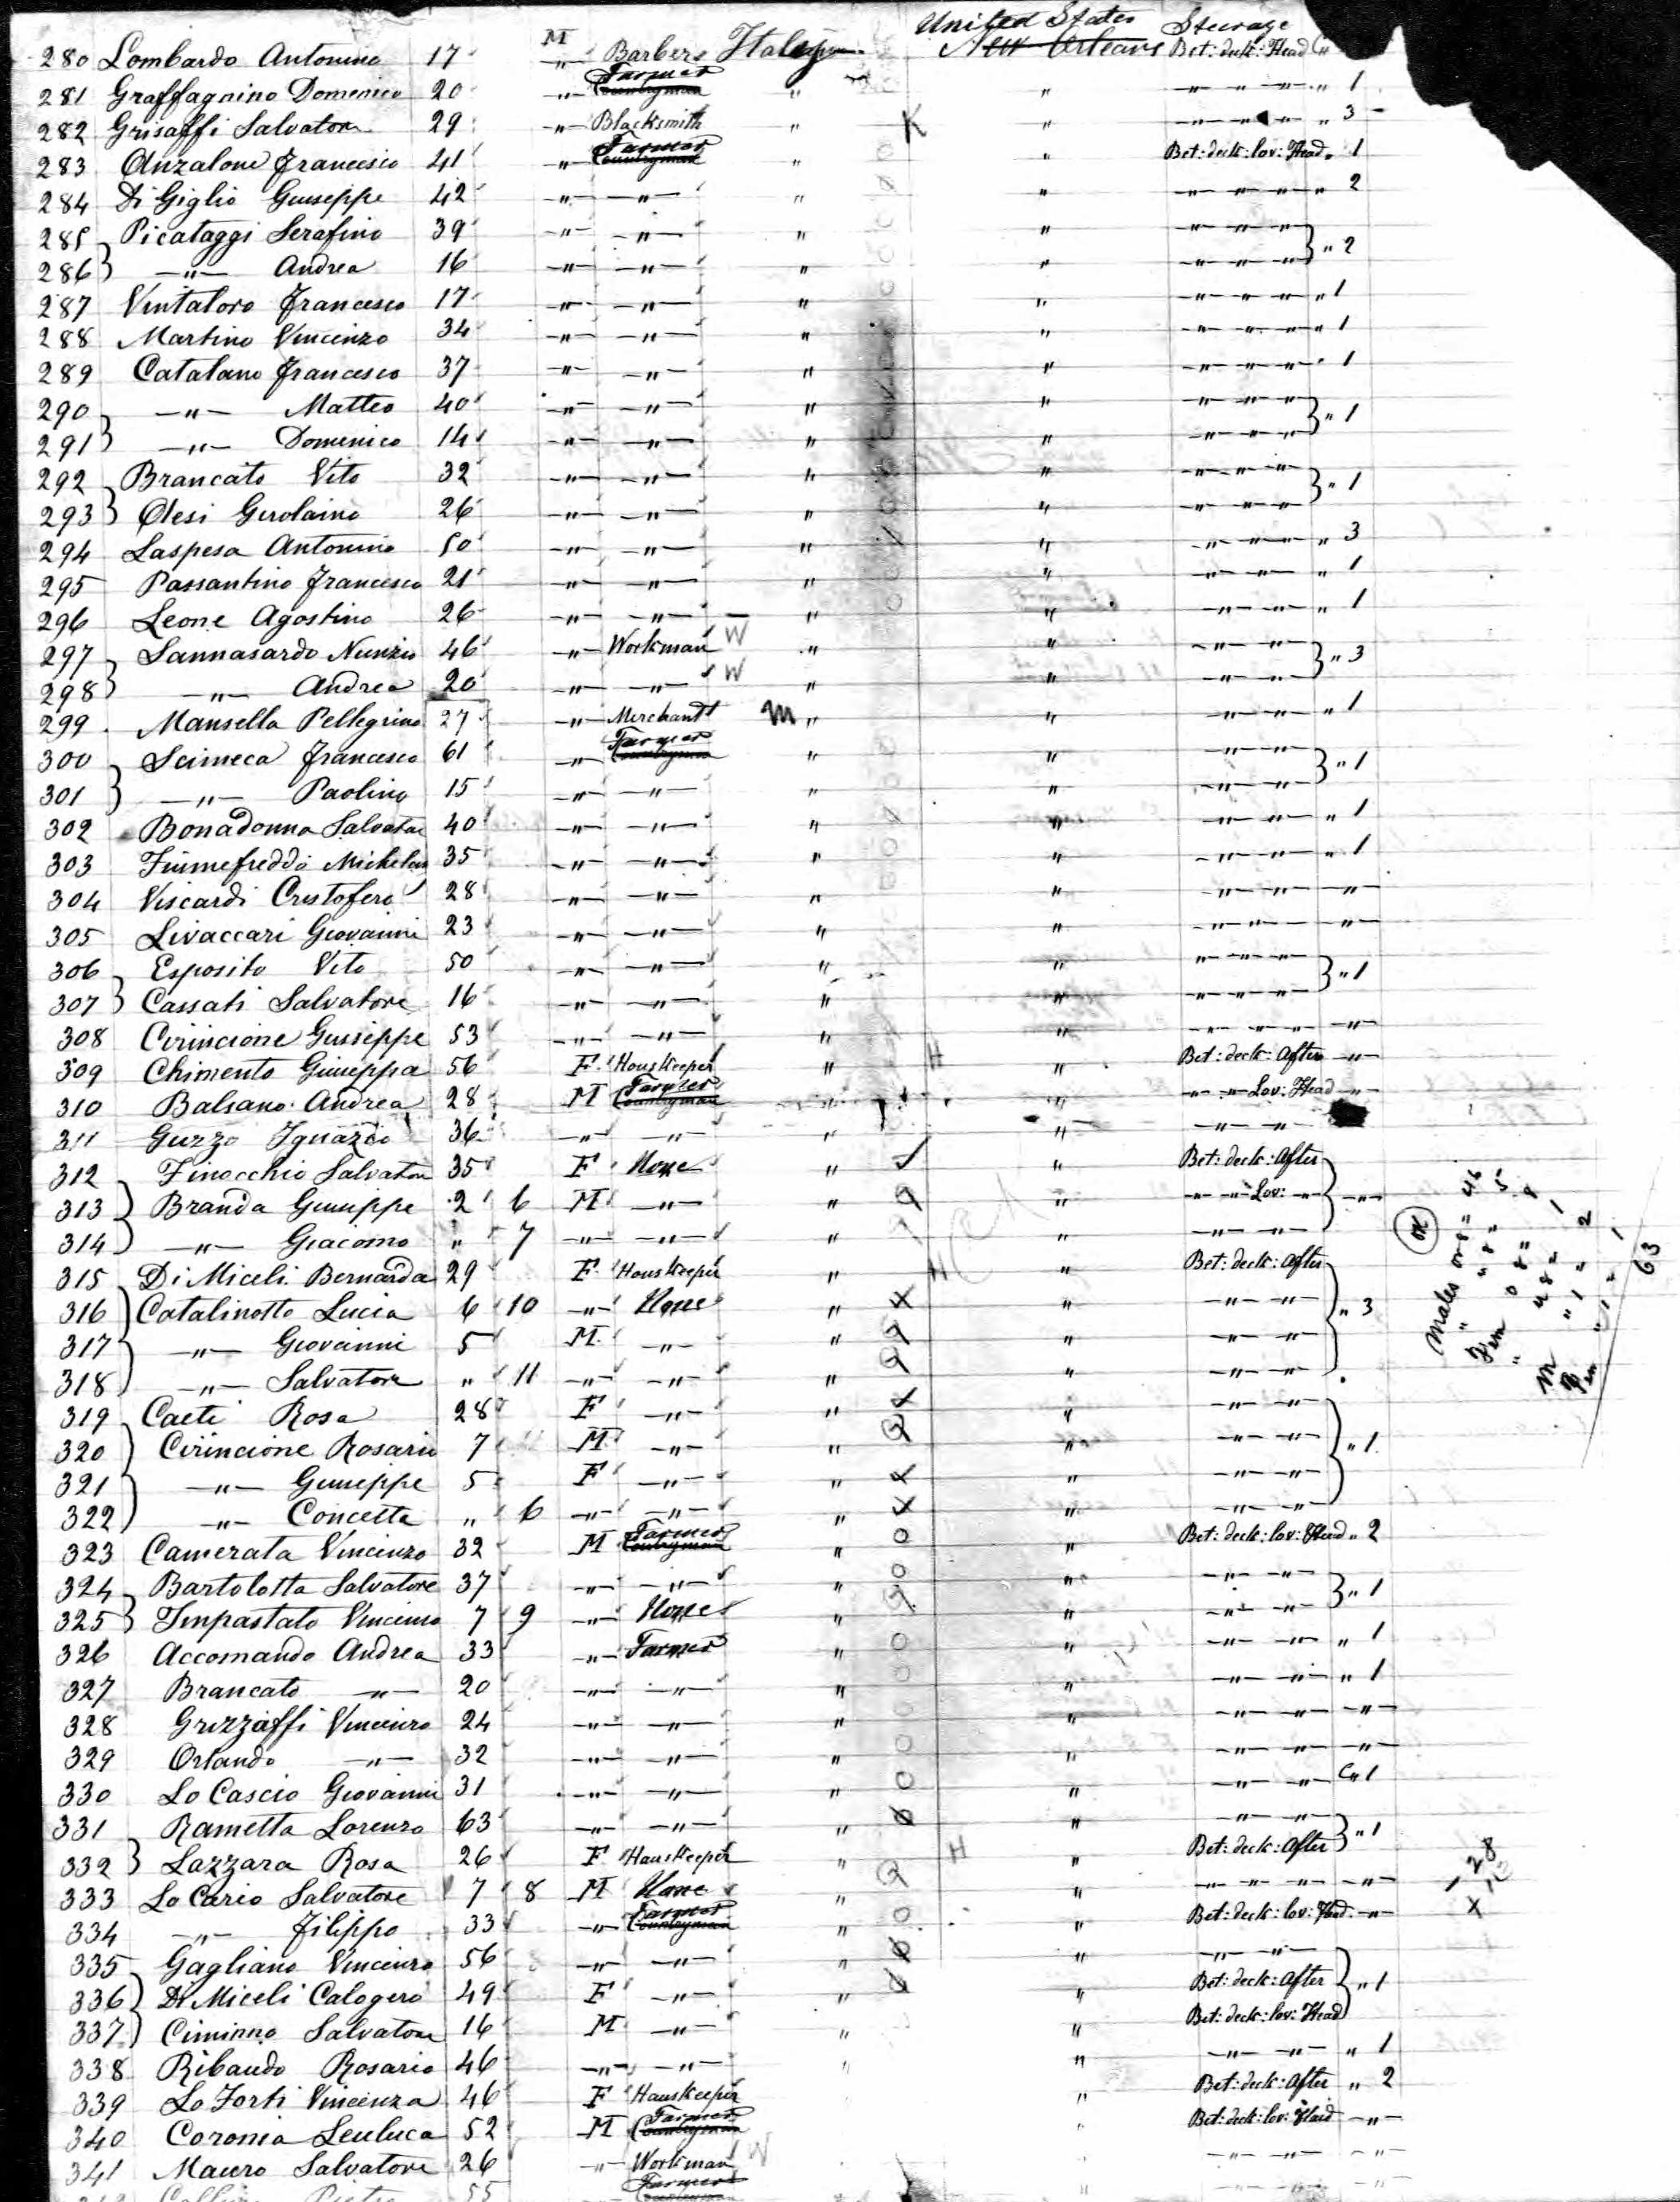 United States Steerage
280 Lombardo Antonino 17 M " Barber Italy New Orleans Bet: deck: Head "
281 Graffagnino Domenico 20 " Farmer Countryman " " " " " " 1
282 Grisaffi Salvatore 29 " Blacksmith " K " " " " " 3
283 Anzalone Francesco 41 " Farmer Countryman " " Bet: deck: lov: Head " 1
284 Di Giglio Giuseppe 42 " " " " " " " " 2
285 Picataggi Serafino 39 " " " " " " " } " 2
286 " Andrea 16 " " " " " " "
287 Vintaloro Francesco 17 " " " " " " " " 1
288 Martino Vincenzo 34 " " " " " " " " 1
289 Catalano Francesco 37 " " " " " " " " 1
290 " Matteo 40 " " " " " " " } " 1
291 " Domenico 14 " " " " " " "
292 Brancato Vito 32 " " " " " " " } " 1
293 Olesi Gerolaino 26 " " " " " " "
294 Laspesa Antonino 50 " " " " " " " " 3
295 Passantino Francesco 21 " " " " " " " 1
296 Leone Agostino 26 " " " " " " " 1
297 Sannasardo Nunzio 46 " Workman W " " " " " } " 3
298 " Andrea 20 " " W " " " "
299 Mansella Pellegrino 27 " Merchant M " " " " " 1
300 Scimeca Francesco 61 " Farmer Countryman " " " " } " 1
301 " Paolino 15 " " " " " "
302 Bonadonna Salvatore 40 " " " " " " " 1
303 Fiumefreddo Michelan 35 " " " " " " " 1
304 Viscardi Cristofero 28 " " " " " " " "
305 Livaccari Giovanni 23 " " " " " " " "
306 Esposito Vito 50 " " " " " " " } " 1
307 Cassati Salvatore 16 " " " " " " "
308 Cirincione Giuseppe 53 " " " " " " " "
309 Chimento Giuseppa 56 F HousKeeper " H " Bet: deck: After "
310 Balsano Andrea 28 M Farmer Countryman " " " " Lov: Head "
311 Guzzo Ignazio 36 " " " " " "
312 Finocchio Salvatore 35 F None " " Bet: deck: After
313 Branda Giuseppe 2 6 M " " " " " Lov: " } "
314 " Giacomo " 7 " " " " " "
315 Di Miceli Bernarda 29 F HousKeeper " H " Bet: deck: After
316 Catalinotto Lucia 6 10 " None " X " " " } " 3
317 " Giovanni 5 M " " " " "
318 " Salvatore " 11 " " " " " "
319 Caeti Rosa 28 F " " X " " "
320 Cirincione Rosario 7 M " " " " " } " 1
321 " Giuseppe 5 F " " X " " "
322 " Concetta " 6 " " " X " " "
323 Camerata Vincenzo 32 M Farmer Countryman " 0 " Bet: deck: lov: Head " 2
324 Bartolotta Salvatore 37 " " " 0 " " " } " 1
325 Impastato Vincenzo 7 9 " None " " " "
326 Accomando Andrea 33 " Farmer " 0 " " " " 1
327 Brancato " 20 " " " 0 " " " " 1
328 Grizzaffi Vincenzo 24 " " " 0 " " " "
329 Orlando " 32 " " " 0 " " " "
330 Lo Cascio Giovanni 31 " " " 0 " " " " 1
331 Rametta Lorenzo 63 " " " 0 " " " } " 1
332 Lazzara Rosa 26 F HausKeeper " H " Bet: deck: After
333 Lo Cario Salvatore 7 8 M None " " " " " "
334 " Filippo 33 " Farmer Countryman " 0 " Bet: deck: lov: Head "
335 Gagliano Vincenzo 56 " " " 0 " " "
336 Di Miceli Calogero 49 F " " 0 " Bet: deck: After } " 1
337 Ciminno Salvatore 16 M " " " Bet: deck: lov: Head
338 Ribaudo Rosario 46 " " " " " " " 1
339 Lo Forti Vincenza 46 F HausKeeper " Bet: deck: After " 2
340 Coronia Leuluca 52 M Farmer Countryman Bet: deck: lov: Head "
341 Mauro Salvatore 26 " Workman W " " "
Pietro 55 Farmer
63
28
X